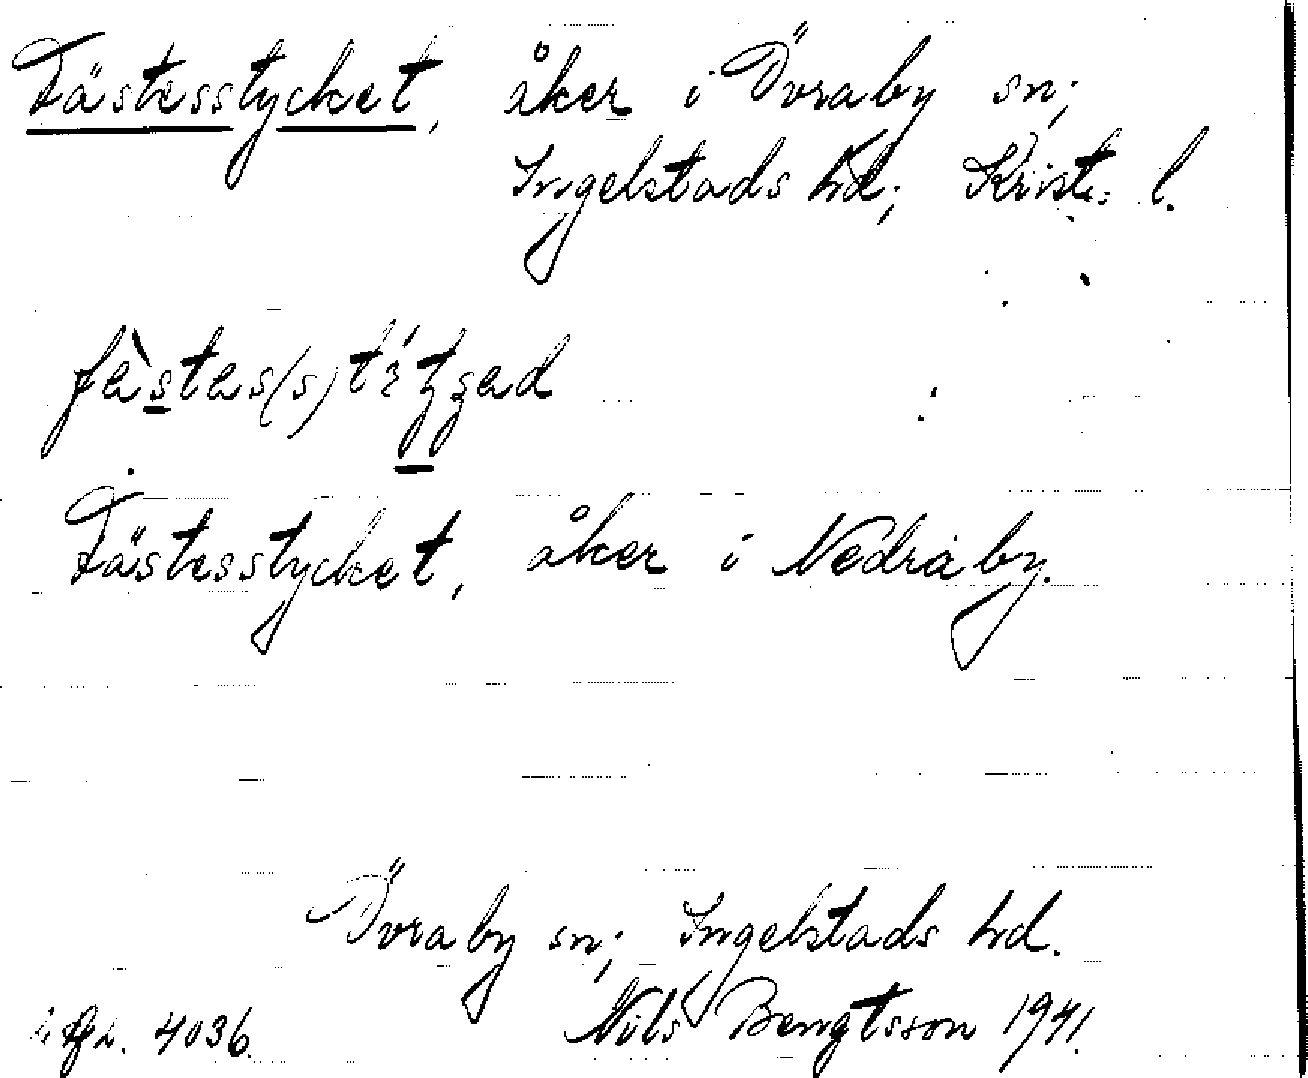 Fästesstycket, åker i Övraby sn;
Ingelstads hd; Krist. l.
Fästesstycket, åker i Nedraby.
Övraby sn; Ingelstads hd.
4036. Nils Bengtsson 1941.